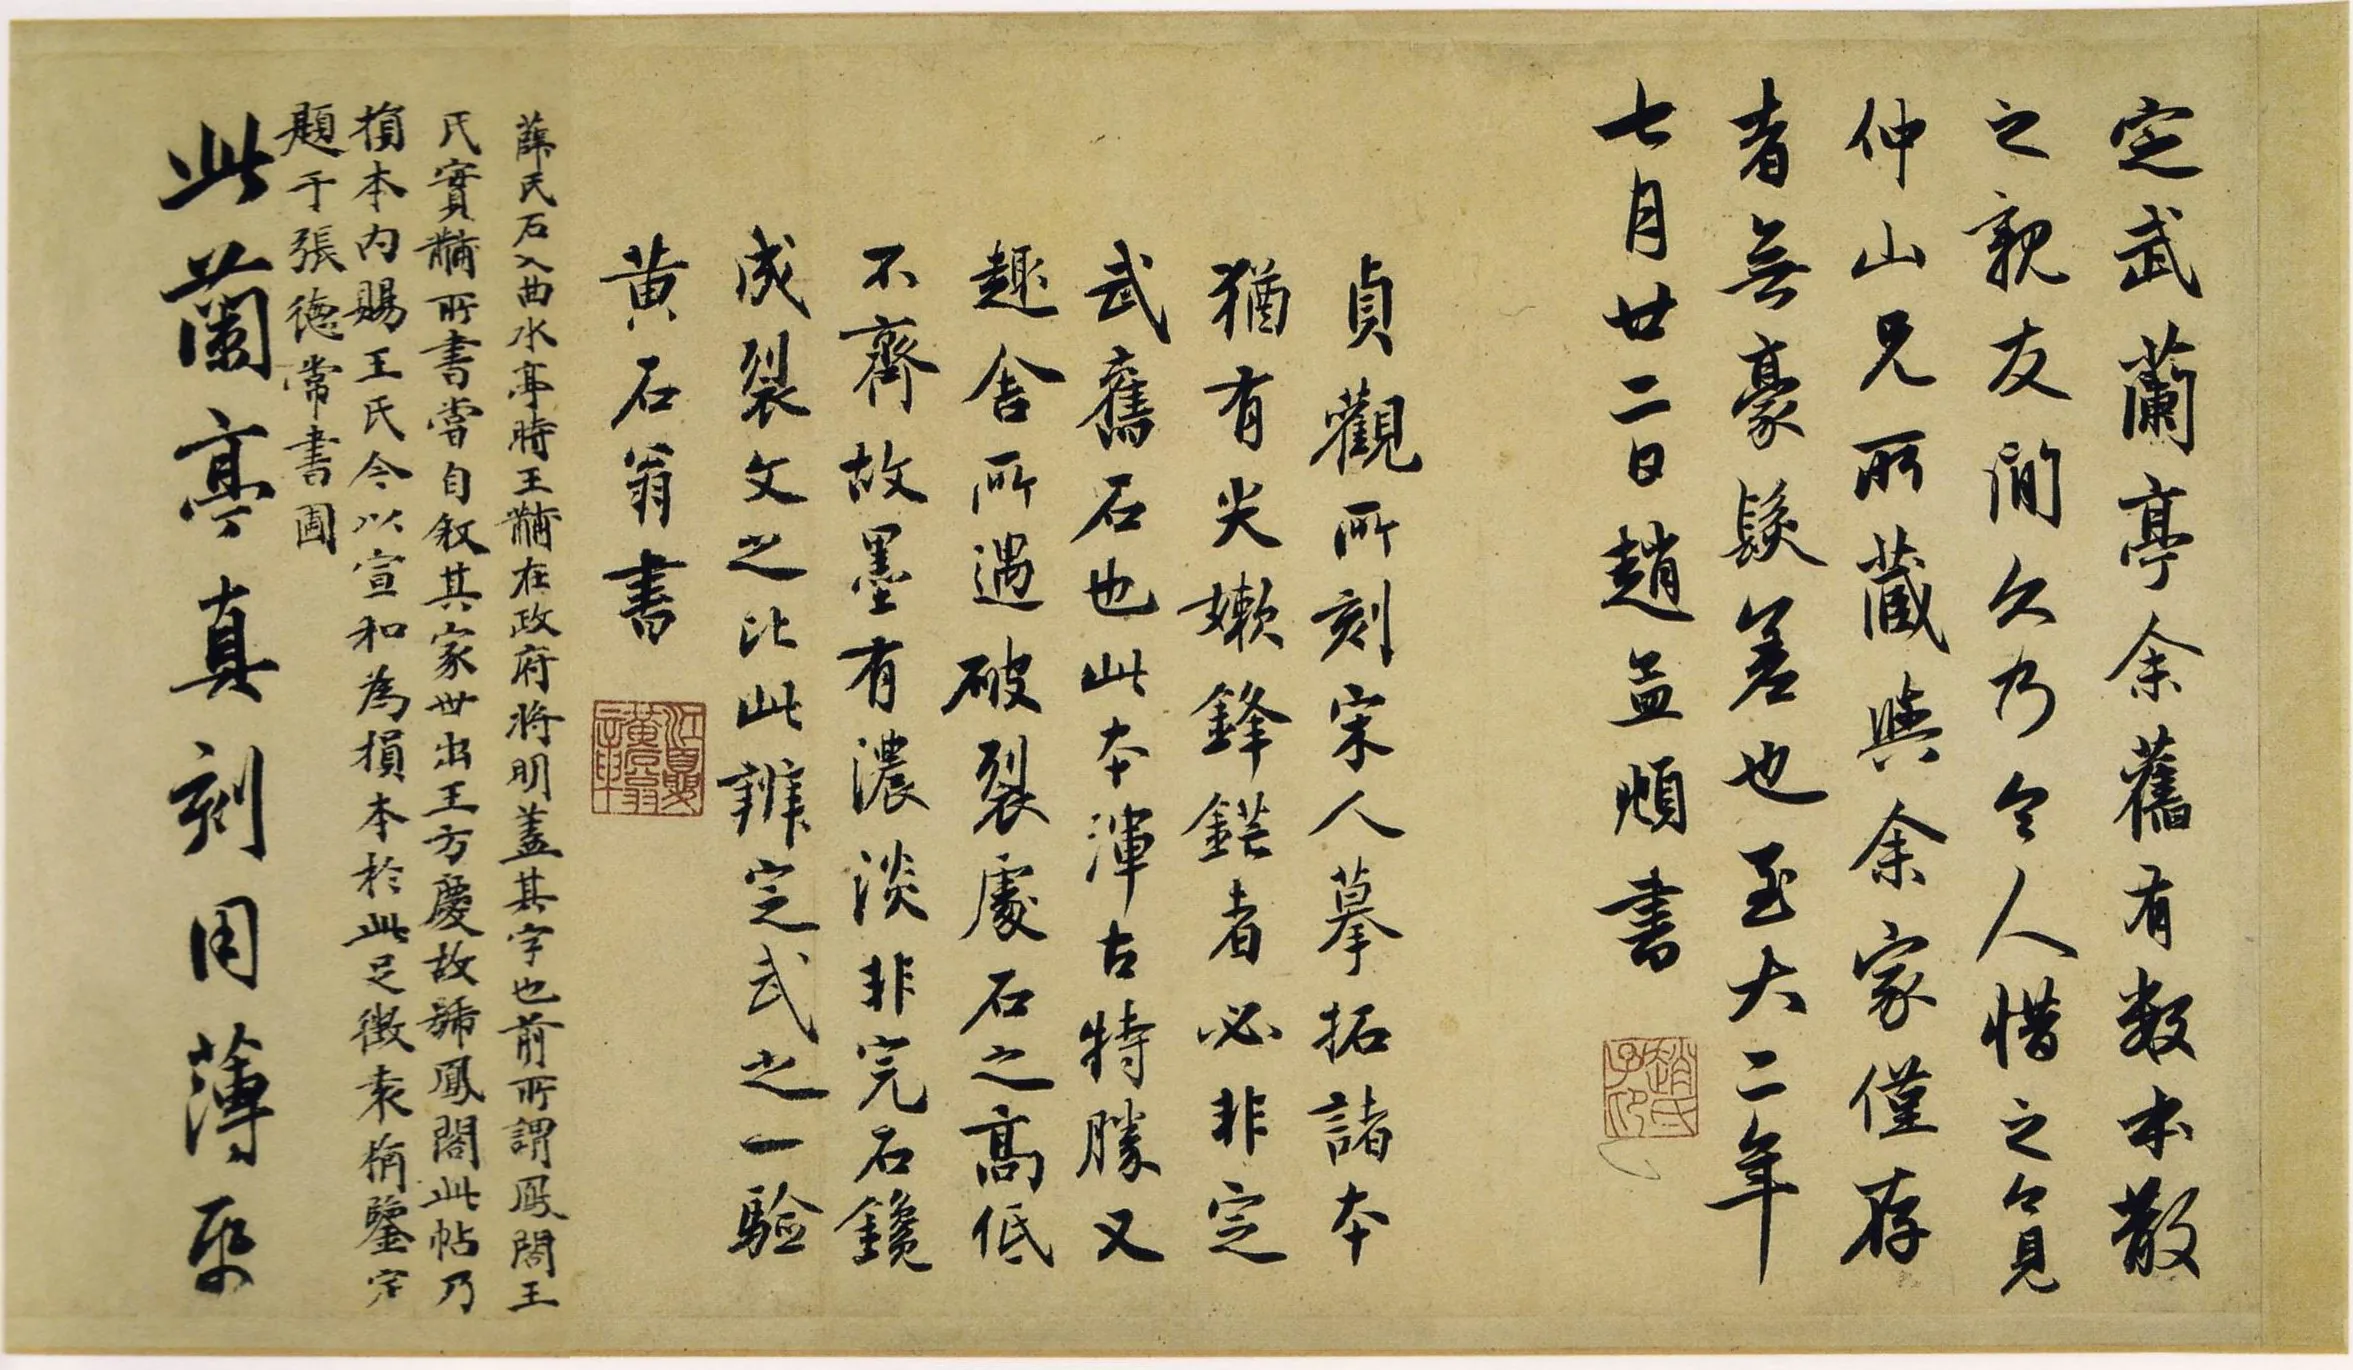 定武蘭亭余舊有數本散
之親友間久乃令人惜之今見
仲山兄所藏與余家僅存
者無豪髮差也至大二年
七月廿二日趙孟頫書
趙氏子印
貞觀所刻宋人摹拓諸本
猶有尖嫩鋒鋩者必非定
武舊石也此本渾古特勝又
趣舍所遇破裂處石之高低
不齊故墨有濃淡非完石鑱
成裂文之比此辨定武之一驗
黃石翁書
薛氏石入曲水亭時王黼在政府將明蓋其字也前所謂鳳閣王
氏實黼所書嘗自敘其家世出王方慶故號鳳閣此帖乃
損本內賜王氏今以宣和為損本於此足徵袁桷鑒定
題于張德常書圃
此蘭亭真刻用薄紙